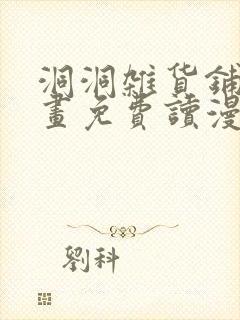 洞洞雜貨鋪
畫免費讀漫
劉科